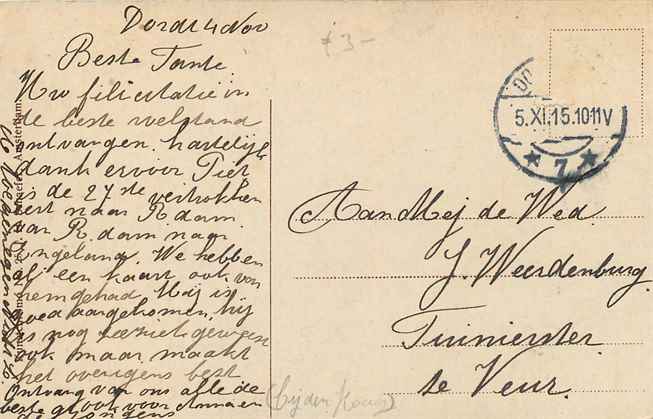 Dordt 4 Nov
Beste Tante
Uw filicitatie in
de beste welstand
ontvangen, hartelijk
dank ervoor Piet
is de 27ste vertrokken
eerst naar R.dam.
van R.dam naar
Engeland. We hebben
al een kaart ook van
hem gehad. Hij is
goed aangekomen, hij
is nog zeeziek geweest
ook maar maakt
het overigens best
Ontvang van ons alle de
beste groet ook voor Anna en
de jongens
f 3-
DO
5.XI.15.10-11V
7
Aan Mej de Wed.
J. Weerdenburg
Tuinierster
te Veur.
Amsterdam